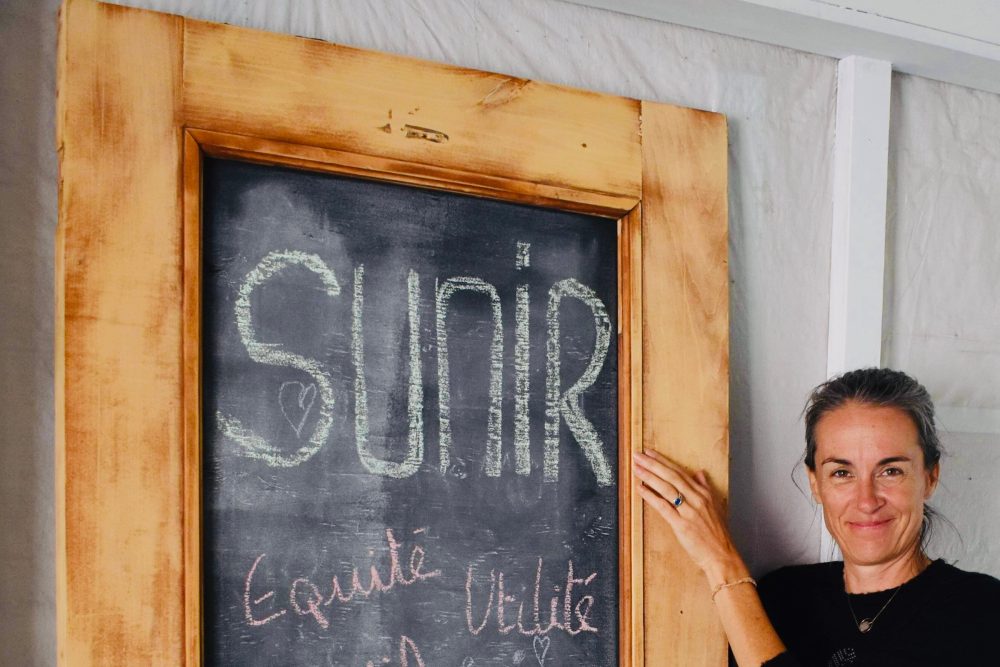 SUniR
Equité Utilité